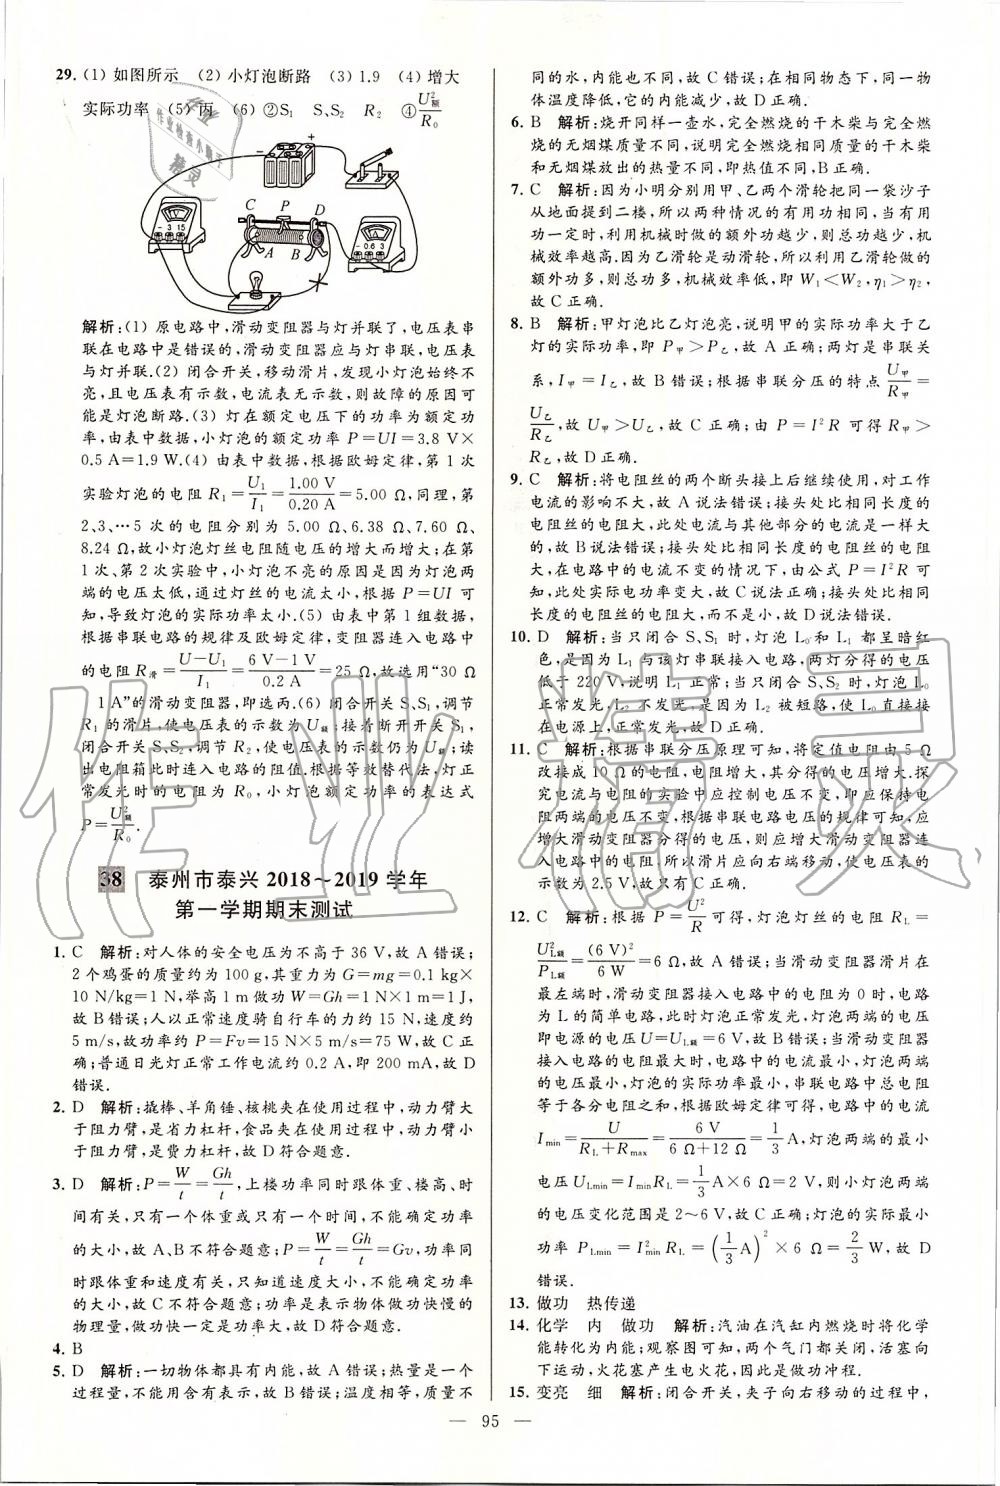 29. (1) 如图所示　(2) 小灯泡断路　(3) 1.9　(4) 增大
实际功率　(5) 丙　(6) ②S₁　S、S₂　R₂　④U²额/R₀
C P D
A B
- 3 15
V
-0.6 3
A
+
解析:(1) 原电路中,滑动变阻器与灯并联了,电压表串
联在电路中是错误的,滑动变阻器应与灯串联,电压表
与灯并联.(2) 闭合开关,移动滑片,发现小灯泡始终不
亮,且电压表有示数,电流表无示数,则故障的原因可
能是灯泡断路.(3) 灯在额定电压下的功率为额定功
率,由表中数据,小灯泡的额定功率 P=UI=3.8 V×
0.5 A=1.9 W.(4) 由表中数据,根据欧姆定律,第 1 次
实验灯泡的电阻 R₁=U₁/I₁=1.00 V/0.20 A=5.00 Ω,同理,第
2、3、…5 次的电阻分别为 5.00 Ω、6.38 Ω、7.60 Ω、
8.24 Ω,故小灯泡灯丝电阻随电压的增大而增大;在第
1 次、第 2 次实验中,小灯泡不亮的原因是因为灯泡两
端的电压太低,通过灯丝的电流太小,根据 P=UI 可
知,导致灯泡的实际功率太小.(5) 由表中第 1 组数据,
根据串联电路的规律及欧姆定律,变阻器连入电路中
的电阻 R滑=(U-U₁)/I₁=(6 V-1 V)/0.2 A=25 Ω,故选用“30 Ω
1 A”的滑动变阻器,即选丙.(6) 闭合开关 S、S₁,调节
R₁的滑片,使电压表的示数为 U额;接着断开开关 S₁,
闭合开关 S、S₂,调节 R₂,使电压表的示数仍为 U额;读
出电阻箱此时连入电路的阻值.根据等效替代法,灯正
常发光时的电阻为 R₀,小灯泡额定功率的表达式
P=U²额/R₀.
38　泰州市泰兴 2018～2019 学年
第一学期期末测试
1. C　解析:对人体的安全电压为不高于 36 V,故 A 错误;
2 个鸡蛋的质量约为 100 g,其重力为 G=mg=0.1 kg×
10 N/kg=1 N,举高 1 m 做功 W=Gh=1 N×1 m=1 J,
故 B 错误;人以正常速度骑自行车的力约 15 N,速度约
5 m/s,故功率约 P=Fv=15 N×5 m/s=75 W,故 C 正
确;普通日光灯正常工作电流约 0.2 A,即 200 mA,故 D
错误.
2. D　解析:撬棒、羊角锤、核桃夹在使用过程中,动力臂大
于阻力臂,是省力杠杆,食品夹在使用过程中,动力臂小
于阻力臂,是费力杠杆,故 D 符合题意.
3. D　解析:P=W/t=Gh/t,上楼功率同时跟体重、楼高、时
间有关,只有一个体重或只有一个时间,不能确定功率
的大小,故 A、B 不符合题意;P=W/t=Gh/t=Gv,功率同
时跟体重和速度有关,只知道速度大小,不能确定功率
的大小,故 C 不符合题意;功率是表示物体做功快慢的
物理量,做功快一定是功率大,故 D 符合题意.
4. B
5. D　解析:一切物体都具有内能,故 A 错误;热量是一个
过程量,不能用含有表示,故 B 错误;温度相等,质量不
同的水,内能也不同,故 C 错误;在相同物态下,同一物
体温度降低,它的内能减少,故 D 正确.
6. B　解析:烧开同样一壶水,完全燃烧的干木柴与完全燃
烧的无烟煤质量不同,说明完全燃烧相同质量的干木柴
和无烟煤放出的热量不同,即热值不同,B 正确.
7. C　解析:因为小明分别用甲、乙两个滑轮把同一袋沙子
从地面提到二楼,所以两种情况的有用功相同,当有用
功一定时,利用机械时做的额外功越少,则总功越少,机
械效率越高,因为乙滑轮是动滑轮,所以利用乙滑轮做的
额外功多,则总功多,机械效率低,即 W₁<W₂,η₁>η₂,
故 C 正确.
8. B　解析:甲灯泡比乙灯泡亮,说明甲的实际功率大于乙
灯的实际功率,即 P甲>P乙,故 A 正确;两灯是串联关
系,I甲=I乙,故 B 错误;根据串联分压的特点 U甲/R甲=
U乙/R乙,故 U甲>U乙,故 C 正确;由 P=I²R 可得 R甲>
R乙,故 D 正确.
9. C　解析:将电阻丝的两个断头接上后继续使用,对工作
电流的影响不大,故 A 说法错误;接头处比相同长度的
电阻丝的电阻大,此处电流与其他部分的电流是一样大
的,故 B 说法错误;接头处比相同长度的电阻丝的电阻
大,在电路中的电流不变的情况下,由公式 P=I²R 可
知,此处实际电功率变大,故 C 说法正确;接头处比相同
长度的电阻丝的电阻大,而不是小,故 D 说法错误.
10. D　解析:当只闭合 S、S₁ 时,灯泡 L₀和 L₁ 都呈暗红
色,是因为 L₁ 与该灯串联接入电路,两灯分得的电压
低于 220 V,说明 L₁ 正常;当只闭合 S、S₂ 时,灯泡 L₀
正常发光,L₂ 不发光,是因为 L₂ 被短路,使 L₀ 直接接
在电源上,正常发光,故 D 正确.
11. C　解析:根据串联分压原理可知,将定值电阻由 5 Ω
改接成 10 Ω 的电阻,电阻增大,其分得的电压增大.探
究电流与电阻的实验中应控制电压不变,即应保持电
阻两端的电压不变,根据串联电路电压的规律可知,应
增大滑动变阻器分得的电压,则应增大滑动变阻器连
入电路中的电阻,所以滑片应向右端移动,使电压表的
示数为 2.5 V,故 C 正确.
12. C　解析:根据 P=U²/R 可得,灯泡灯丝的电阻 R_L=
U²L额/PL额=(6 V)²/6 W=6 Ω,故 A 错误;当滑动变阻器滑片在
最左端时,滑动变阻器接入电路中的电阻为 0 时,电路
为 L 的简单电路,此时灯泡正常发光,灯泡两端的电压
即电源的电压 U=UL额=6 V,故 B 错误;当滑动变阻器
接入电路的电阻最大时,电路中的电流最小,灯泡两端
的电压最小,灯泡的实际功率最小,串联电路中总电阻
等于各分电阻之和,根据欧姆定律可得,电路中的电流
I_min=U/(R_L+R_max)=6 V/(6 Ω+12 Ω)=1/3 A,灯泡两端的最小
电压 U_Lmin=I_min R_L=1/3 A×6 Ω=2 V,则小灯泡两端
的电压变化范围是 2～6 V,故 C 正确;灯泡的实际最小
功率 P_Lmin=I²_min R_L=(1/3 A)²×6 Ω=2/3 W,故 D
错误.
13. 做功　热传递
14. 化学　内　做功　解析:汽油在汽缸内燃烧时将化学
能转化为内能;观察图可知,两个气门都关闭,活塞向
下运动,火花塞产生电火花,因此是做功冲程.
15. 变亮　细　解析:闭合开关,夹子向右移动的过程中,
— 95 —
作业精灵